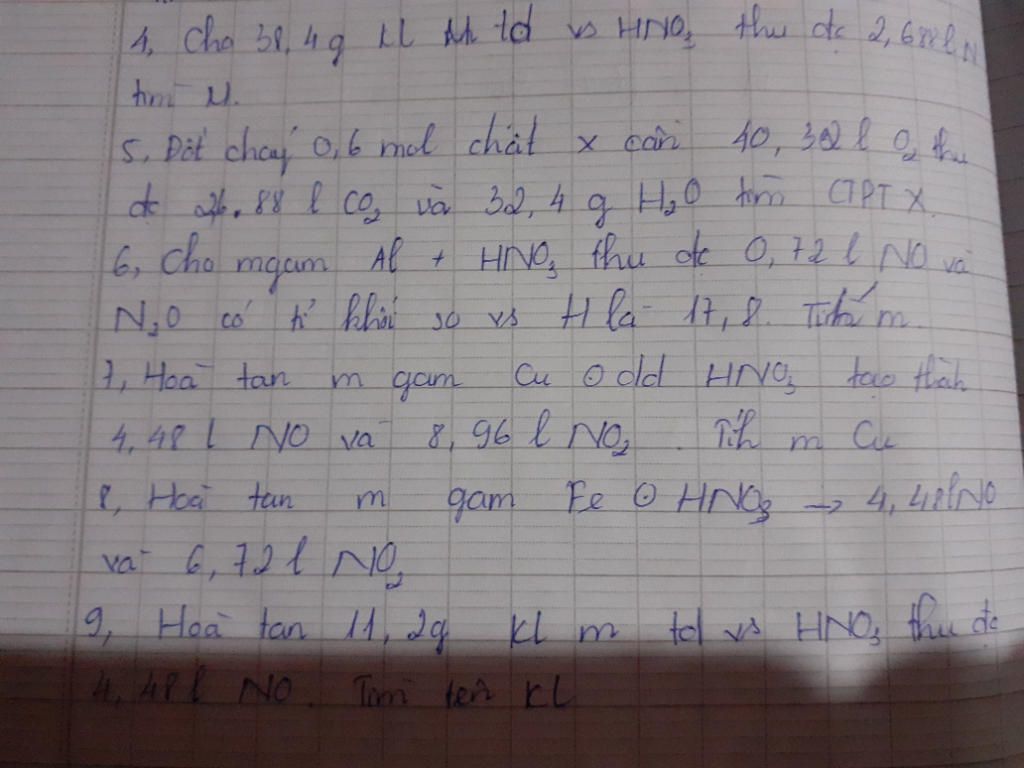 4, Cho 38,4g kl M td vs HNO3 thu dc 2,688l N
tìm M.
5, Đốt cháy 0,6 mol chất x cần 40,32 l O2 thu
dc 26.88 l CO2 và 32,4 g H2O tìm CTPT X.
6, Cho mgam Al + HNO3 thu dc 0,72 l NO và
N2O có tỉ khối so vs H là 17,8. Tính m.
7, Hoà tan m gam Cu dd HNO3 tạo thành
4,48 l NO và 8,96 l NO2. Tíh m Cu
8, Hoà tan m gam Fe HNO3 → 4,48l NO
và 6,72 l NO2
9, Hoà tan 11,2g kl m td vs HNO3 thu dc
4,48 l NO. Tìm tên kl